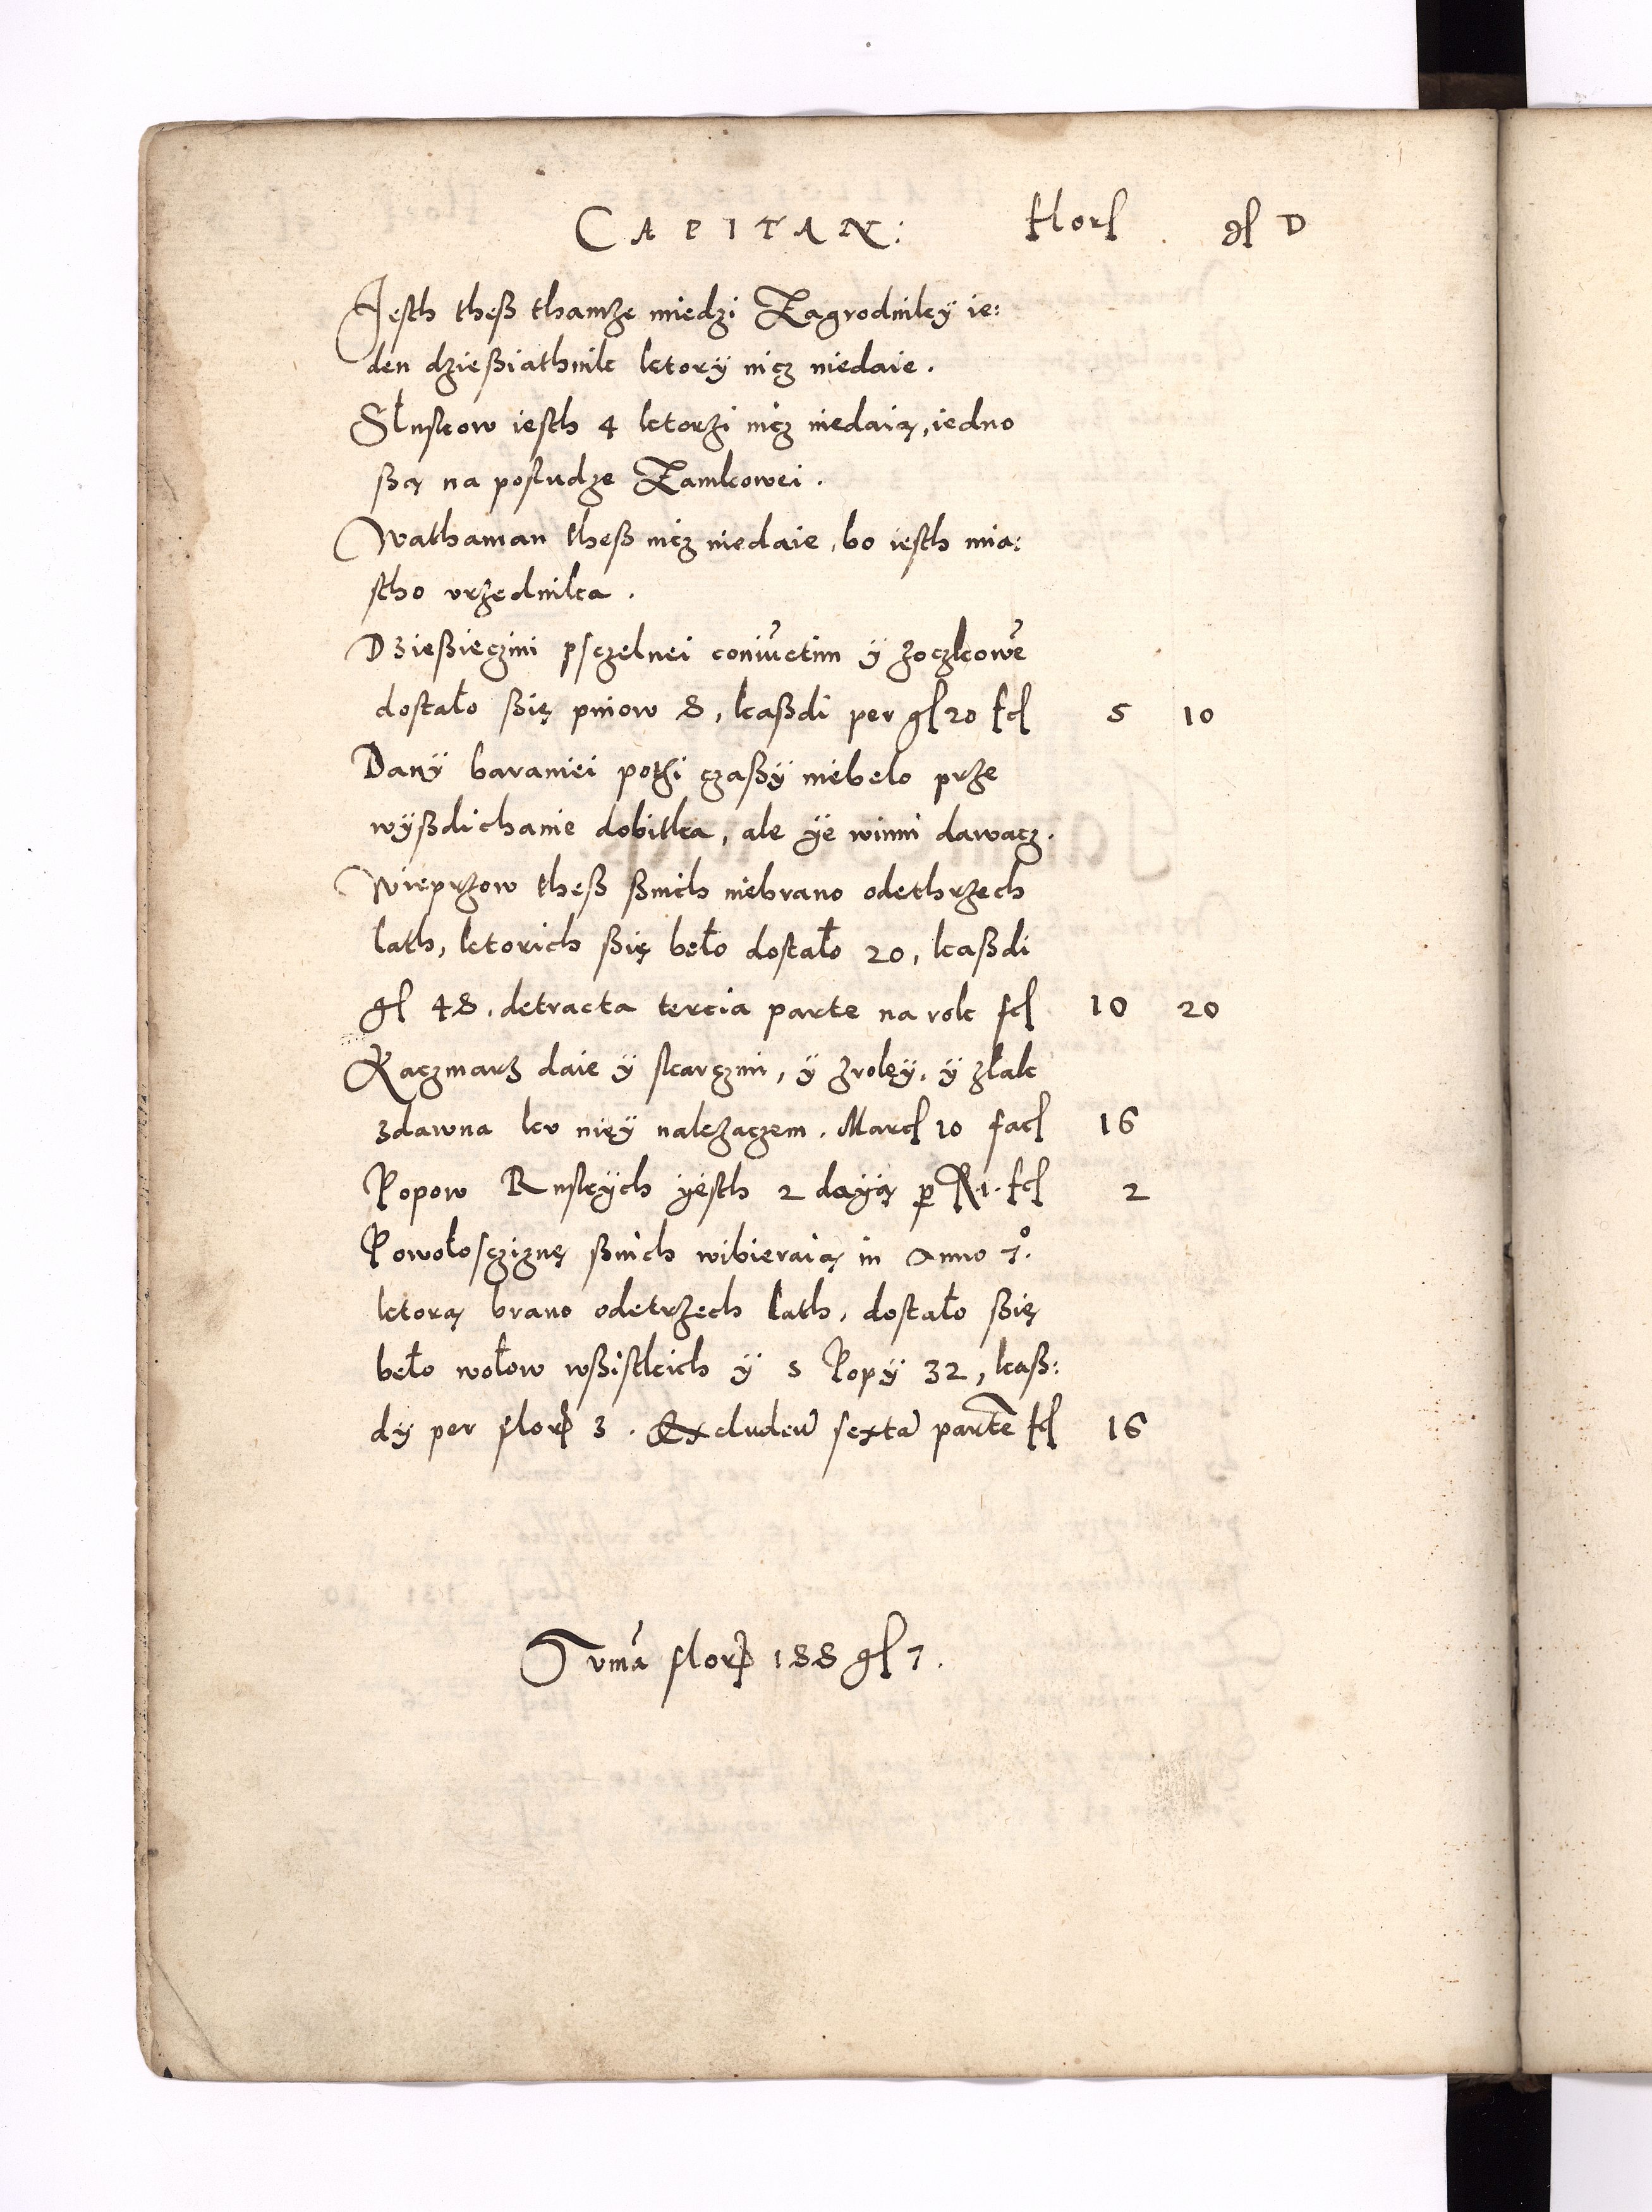 CAPITAN: Flor[ gl D
Jesth theß thamże miedzi Zagrodniky ie:
den dzießiathnik ktory nicz niedaie.
Słuskow iesth 4 ktorżi nicz niedaią, iedno
ßą na posłudze Zamkowei.
Wathaman theß nicz niedaie, bo iesth mia:
stho vrżednika.
Dzießięczini psczelnei coniuctim ÿ zoczkowe
dostało ßię pniow 8, kaßdi per gl 20 fcl 5 10
Danÿ baraniei potÿ czaßÿ niebeło prże
wÿßdichanie dobitka, ale ÿe winni dawacz.
Wieprżow theß ßnich niebrano odethrżech
lath, ktorich ßię beło dostało 20, kaßdi
gl 48. detracta tercia parte na rok fcl 10 20
Kaczmarz daie ÿ skarczmi, ÿ zrolęÿ, ÿ złąk
zdawna kv nięÿ należaczem. Marcl 10 facl 16
Popow Ruskÿch ÿesth 2 daÿą per R 1. fcl 2
Powołosczizną ßnich wibieraią in Anno 7º.
ktorą brano odetrżech lath, dostało ßię
beło wołow wßistkich ÿ s Popÿ 32, kaß:
dÿ per flor 3. Excluden sexta parte fcl 16
Suma flor 188 gl 7.